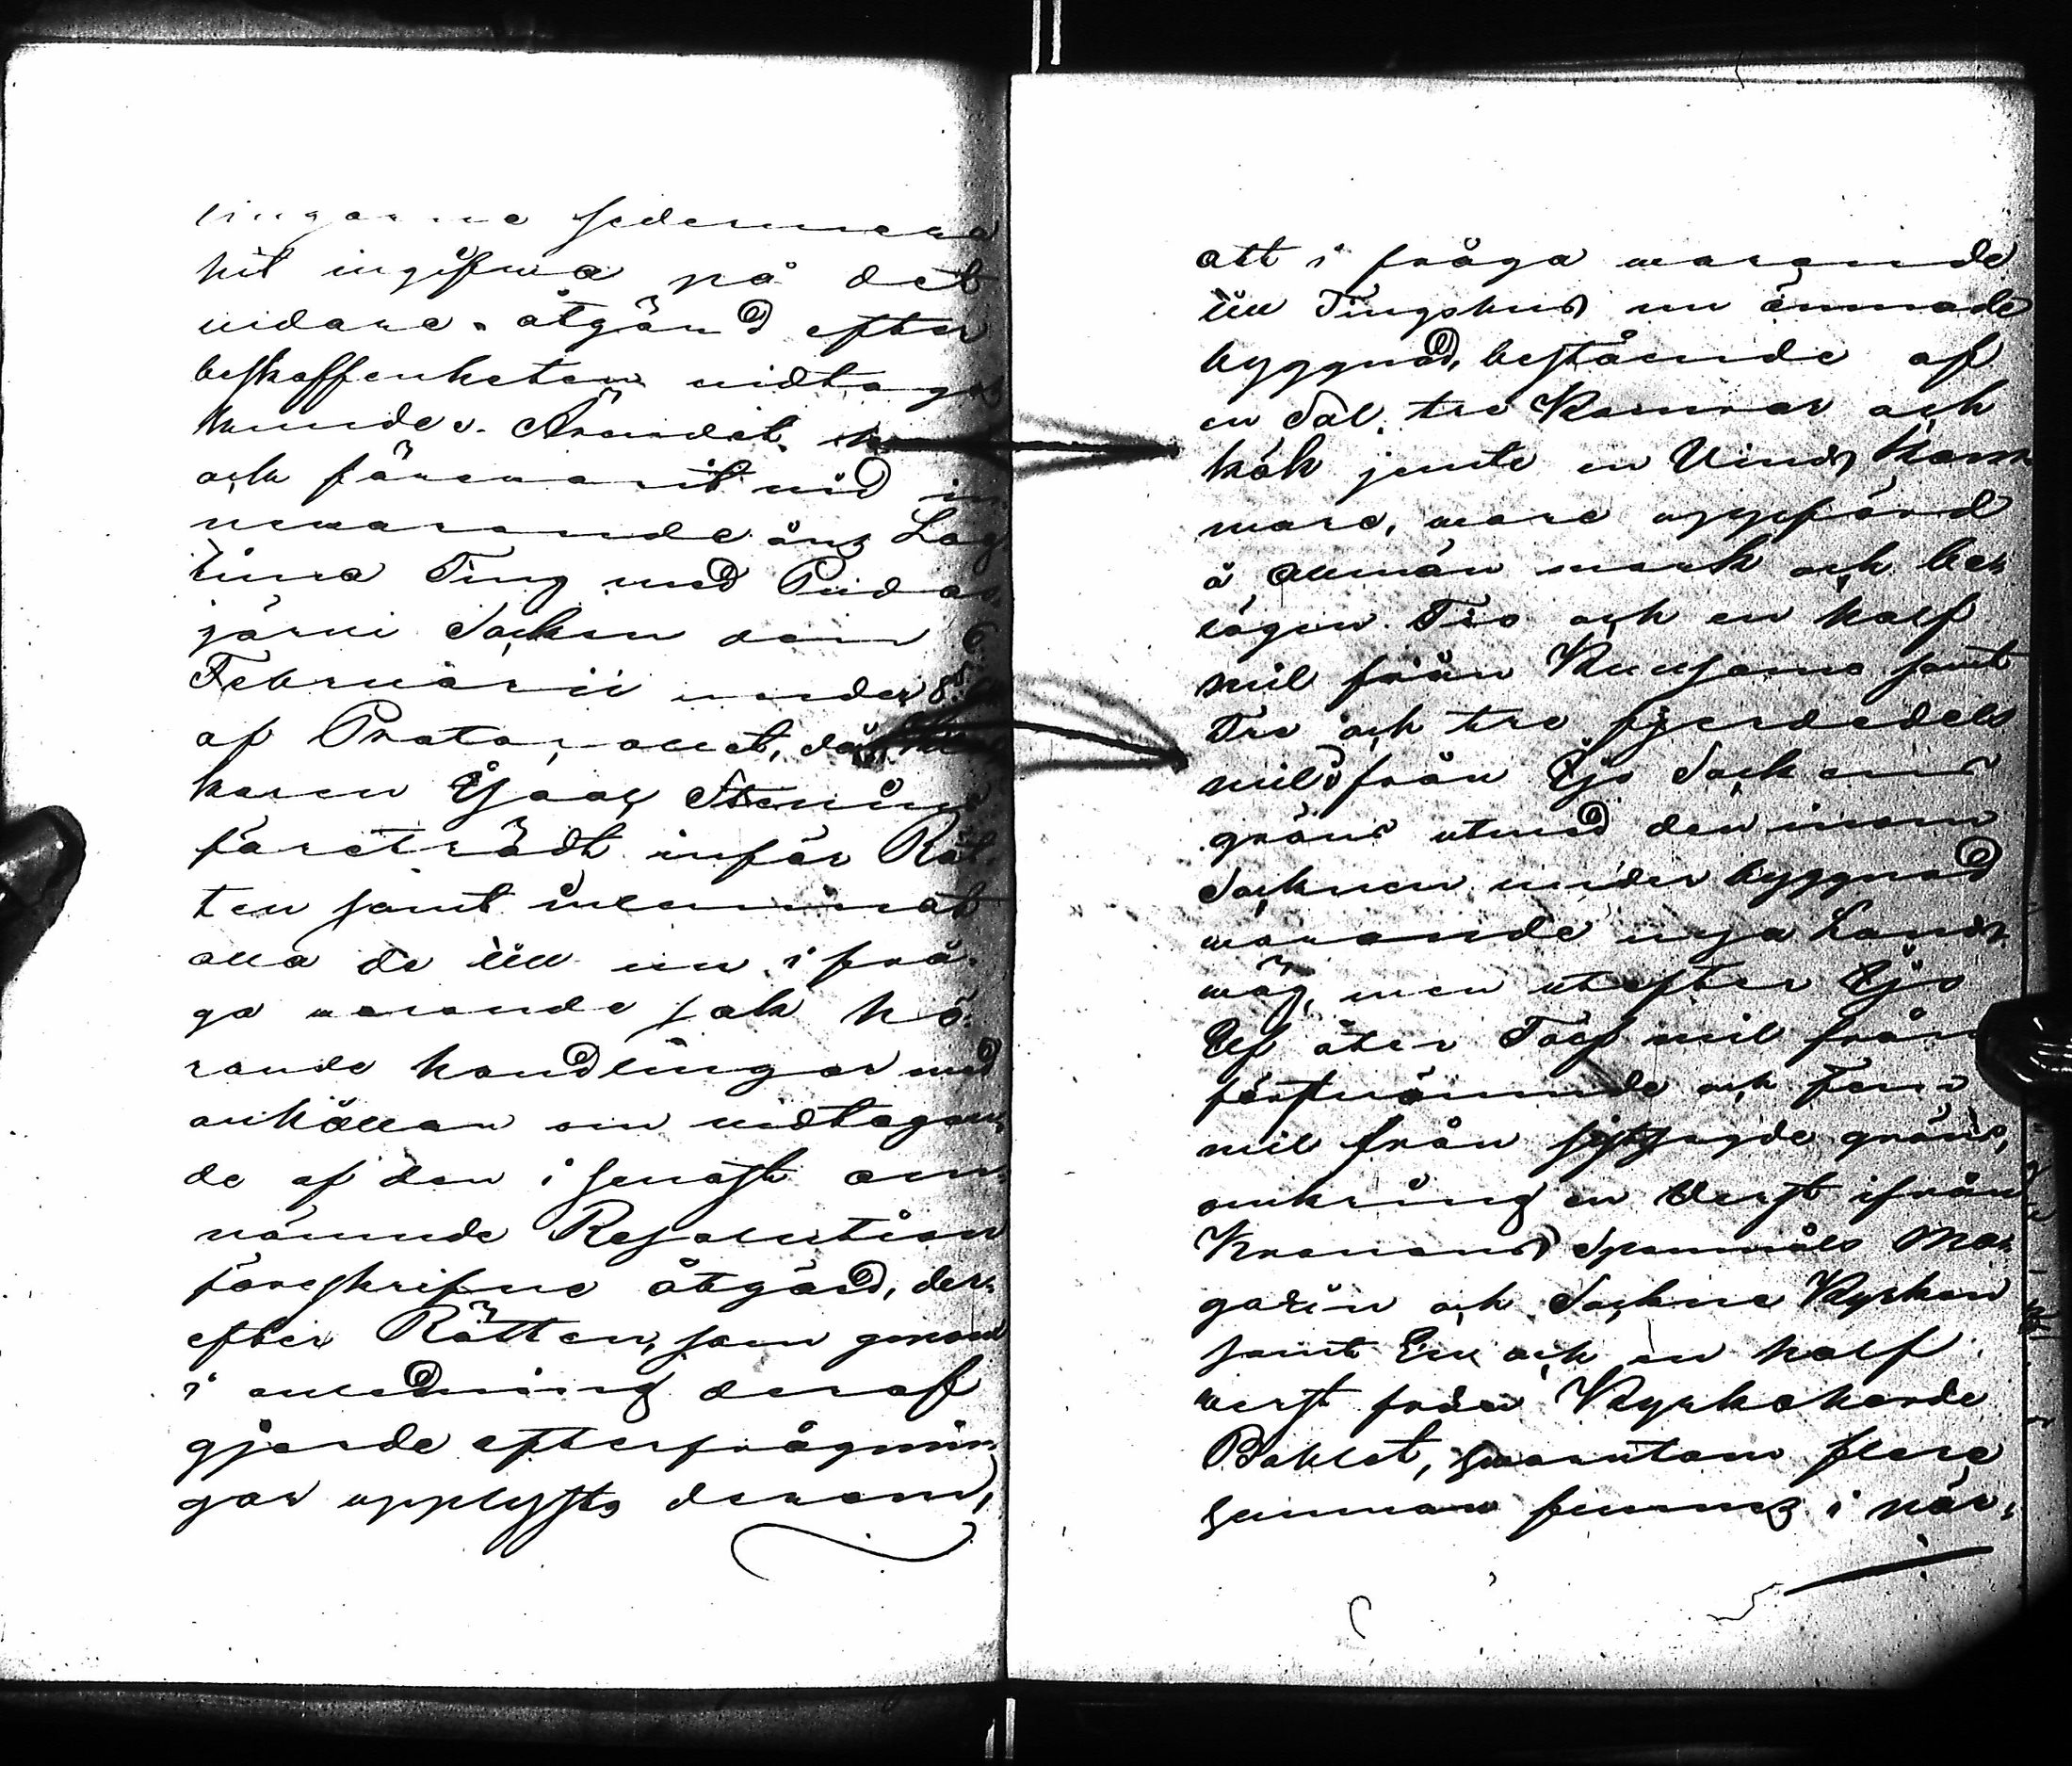 lingarne sedermera
hit ingifwa på det
vidare åtgärd efter
beskaffenheten vidtagas
kunde. Ärendet
och förewarit vid in
newarande års Lag
tima Ting med Pudas
järvi Socken den 6
Februarii under 8.
af Protocollet, då
karen Isaac Stenius
företrädt inför Rät-
ten samt inlemnat
alla de till nu i frå-
ga warande sak hö-
rande handlingar med
anhållan om vidtagan-
de af den i senast om-
nämnde Resolution
föreskrifne åtgärd, der-
efter Rätten, som genom
i anledning deraf
gjorde efterfrågnin-
gar upplysts derom,
att i fråga warande
till Tingshus nu ämnade
byggnad, bestående af
en Sal, tre Kamrar och
kök jemte en Vinds Kam-
mare, wore uppförd
å allmän mark och be-
lägen Tio och en half
mil från Kuusamo samt
Tre och tre fjerdedels
mil från Ijo Sockens
gräns utmed den inom
Socknen under byggnad
warande nya Lands-
wäg, men utefter Ijo
Elf åter Tolf mil från
förstnämnde och Fem
mil från sistsagde gräns,
omkring en Verst ifrån
Kronans Spannmåls Ma-
gazin och Sockne Kyrkan
samt En och en half
verst från Kyrkoherde
Bohlet, hwarutom flere
hemman finnas i när-